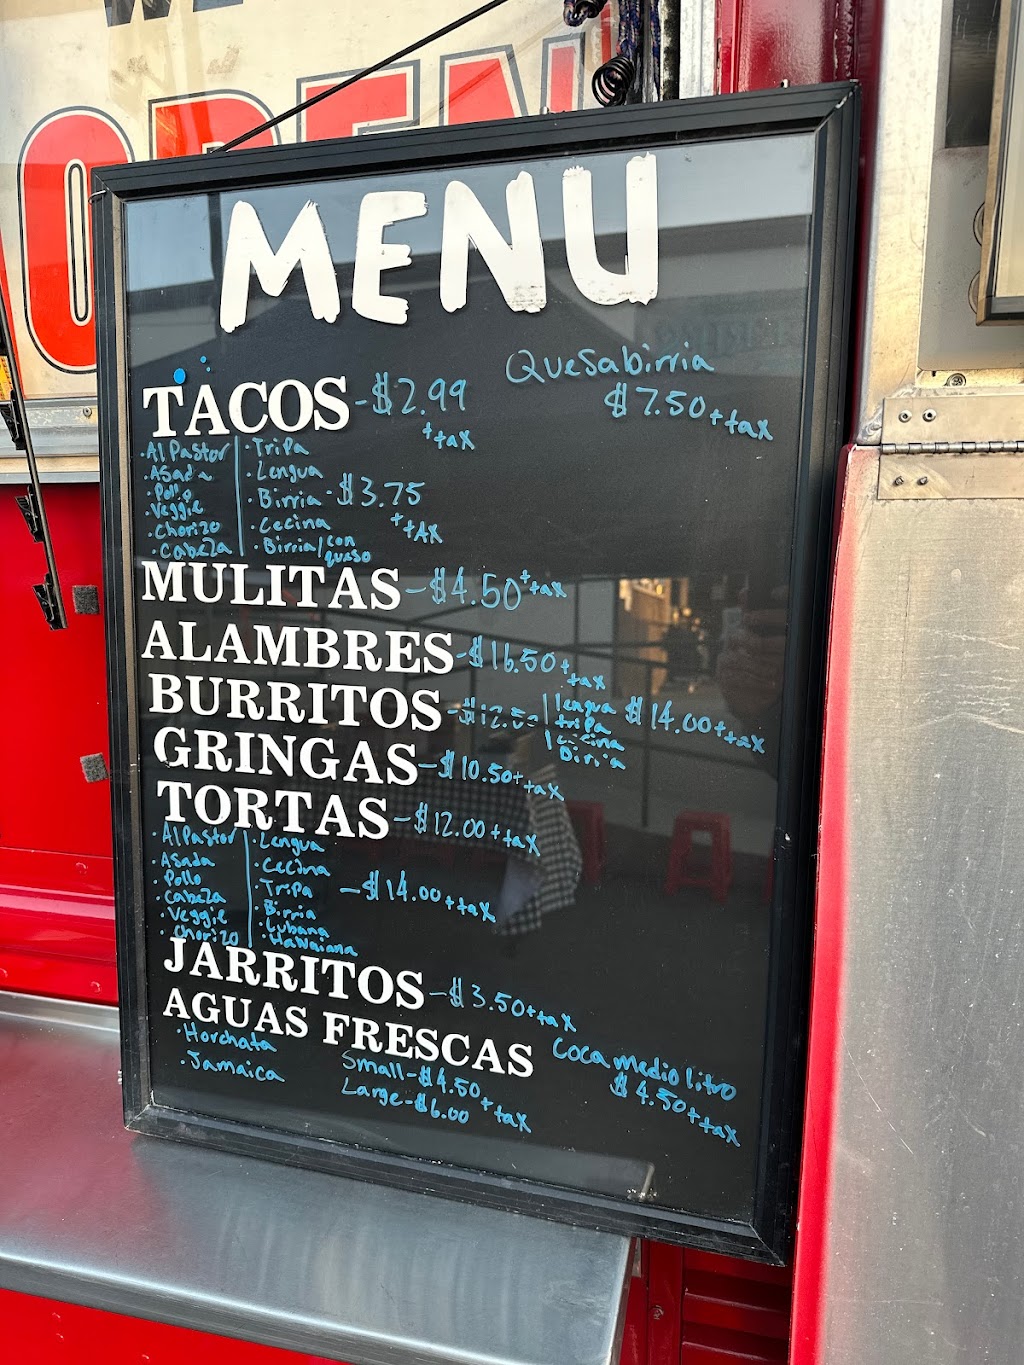 OPEN
MENU
Quesabirria
$7.50 + tax
TACOS - $2.99
+ tax
• Al Pastor
• Asada
• Pollo
• Veggie
• Chorizo
• Cabeza
• Tripa
• Lengua
• Birria - $3.75
• Cecina + tAX
• Birria/con
queso
MULITAS - $4.50 + tax
ALAMBRES - $16.50 +
tax
BURRITOS - $12.50 | lengua $14.00 + tax
tripa
| Cecina
Birria
GRINGAS - $10.50 + tax
TORTAS - $12.00 + tax
• Al Pastor
• Asada
• Pollo
• Cabeza
• Veggie
• Chorizo
• Lengua
• Cecina
• Tripa - $14.00 + tax
• Birria
• Cubana
• Hawaiana
JARRITOS - $3.50 + tax
AGUAS FRESCAS
• Horchata
• Jamaica
Small - $4.50
Large - $6.00 + tax
Coca medio litro
$4.50 + tax